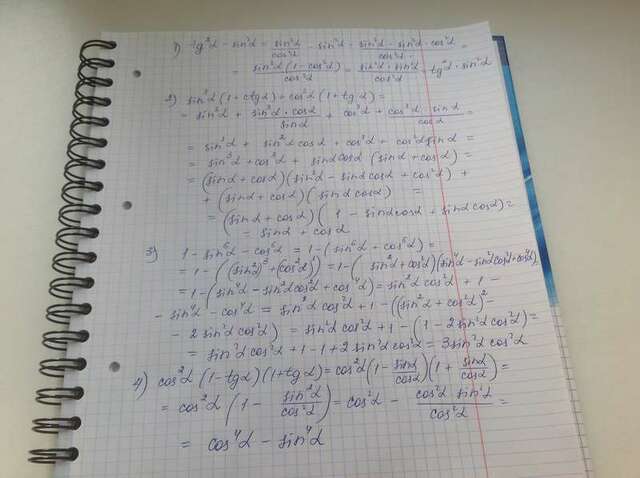 1) tg²α - sin²α = sin²α/cos²α - sin²α = (sin²α - sin²α · cos²α)/cos²α =
= sin²α (1 - cos²α)/cos²α = sin²α · sin²α/cos²α = tg²α · sin²α
2) sin³α (1 + ctgα) + cos³α (1 + tgα) =
= sin³α + sin³α · cosα/sinα + cos³α + cos³α · sinα/cosα =
= sin³α + sin²α cosα + cos³α + cos²α sinα =
= sin³α + cos³α + sinα cosα (sinα + cosα) =
= (sinα + cosα)(sin²α - sinα cosα + cos²α) +
+ (sinα + cosα)(sinα cosα) =
= (sinα + cosα)(1 - sinα cosα + sinα cosα) =
= sinα + cosα
3) 1 - sin⁶α - cos⁶α = 1 - (sin⁶α + cos⁶α) =
= 1 - ((sin²α)³ + (cos²α)³) = 1 - (sin²α + cos²α)(sin⁴α - sin²α cos²α + cos⁴α)
= 1 - (sin⁴α - sin²α cos²α + cos⁴α) = sin²α cos²α + 1 -
- sin⁴α - cos⁴α = sin²α cos²α + 1 - ((sin²α + cos²α)² -
- 2 sin²α cos²α) = sin²α cos²α + 1 - (1 - 2 sin²α cos²α) =
= sin²α cos²α + 1 - 1 + 2 sin²α cos²α = 3 sin²α cos²α
4) cos²α (1 - tgα)(1 + tgα) = cos²α (1 - sinα/cosα)(1 + sinα/cosα) =
= cos²α (1 - sin²α/cos²α) = cos²α - cos²α sin²α/cos²α =
= cos⁴α - sin⁴α